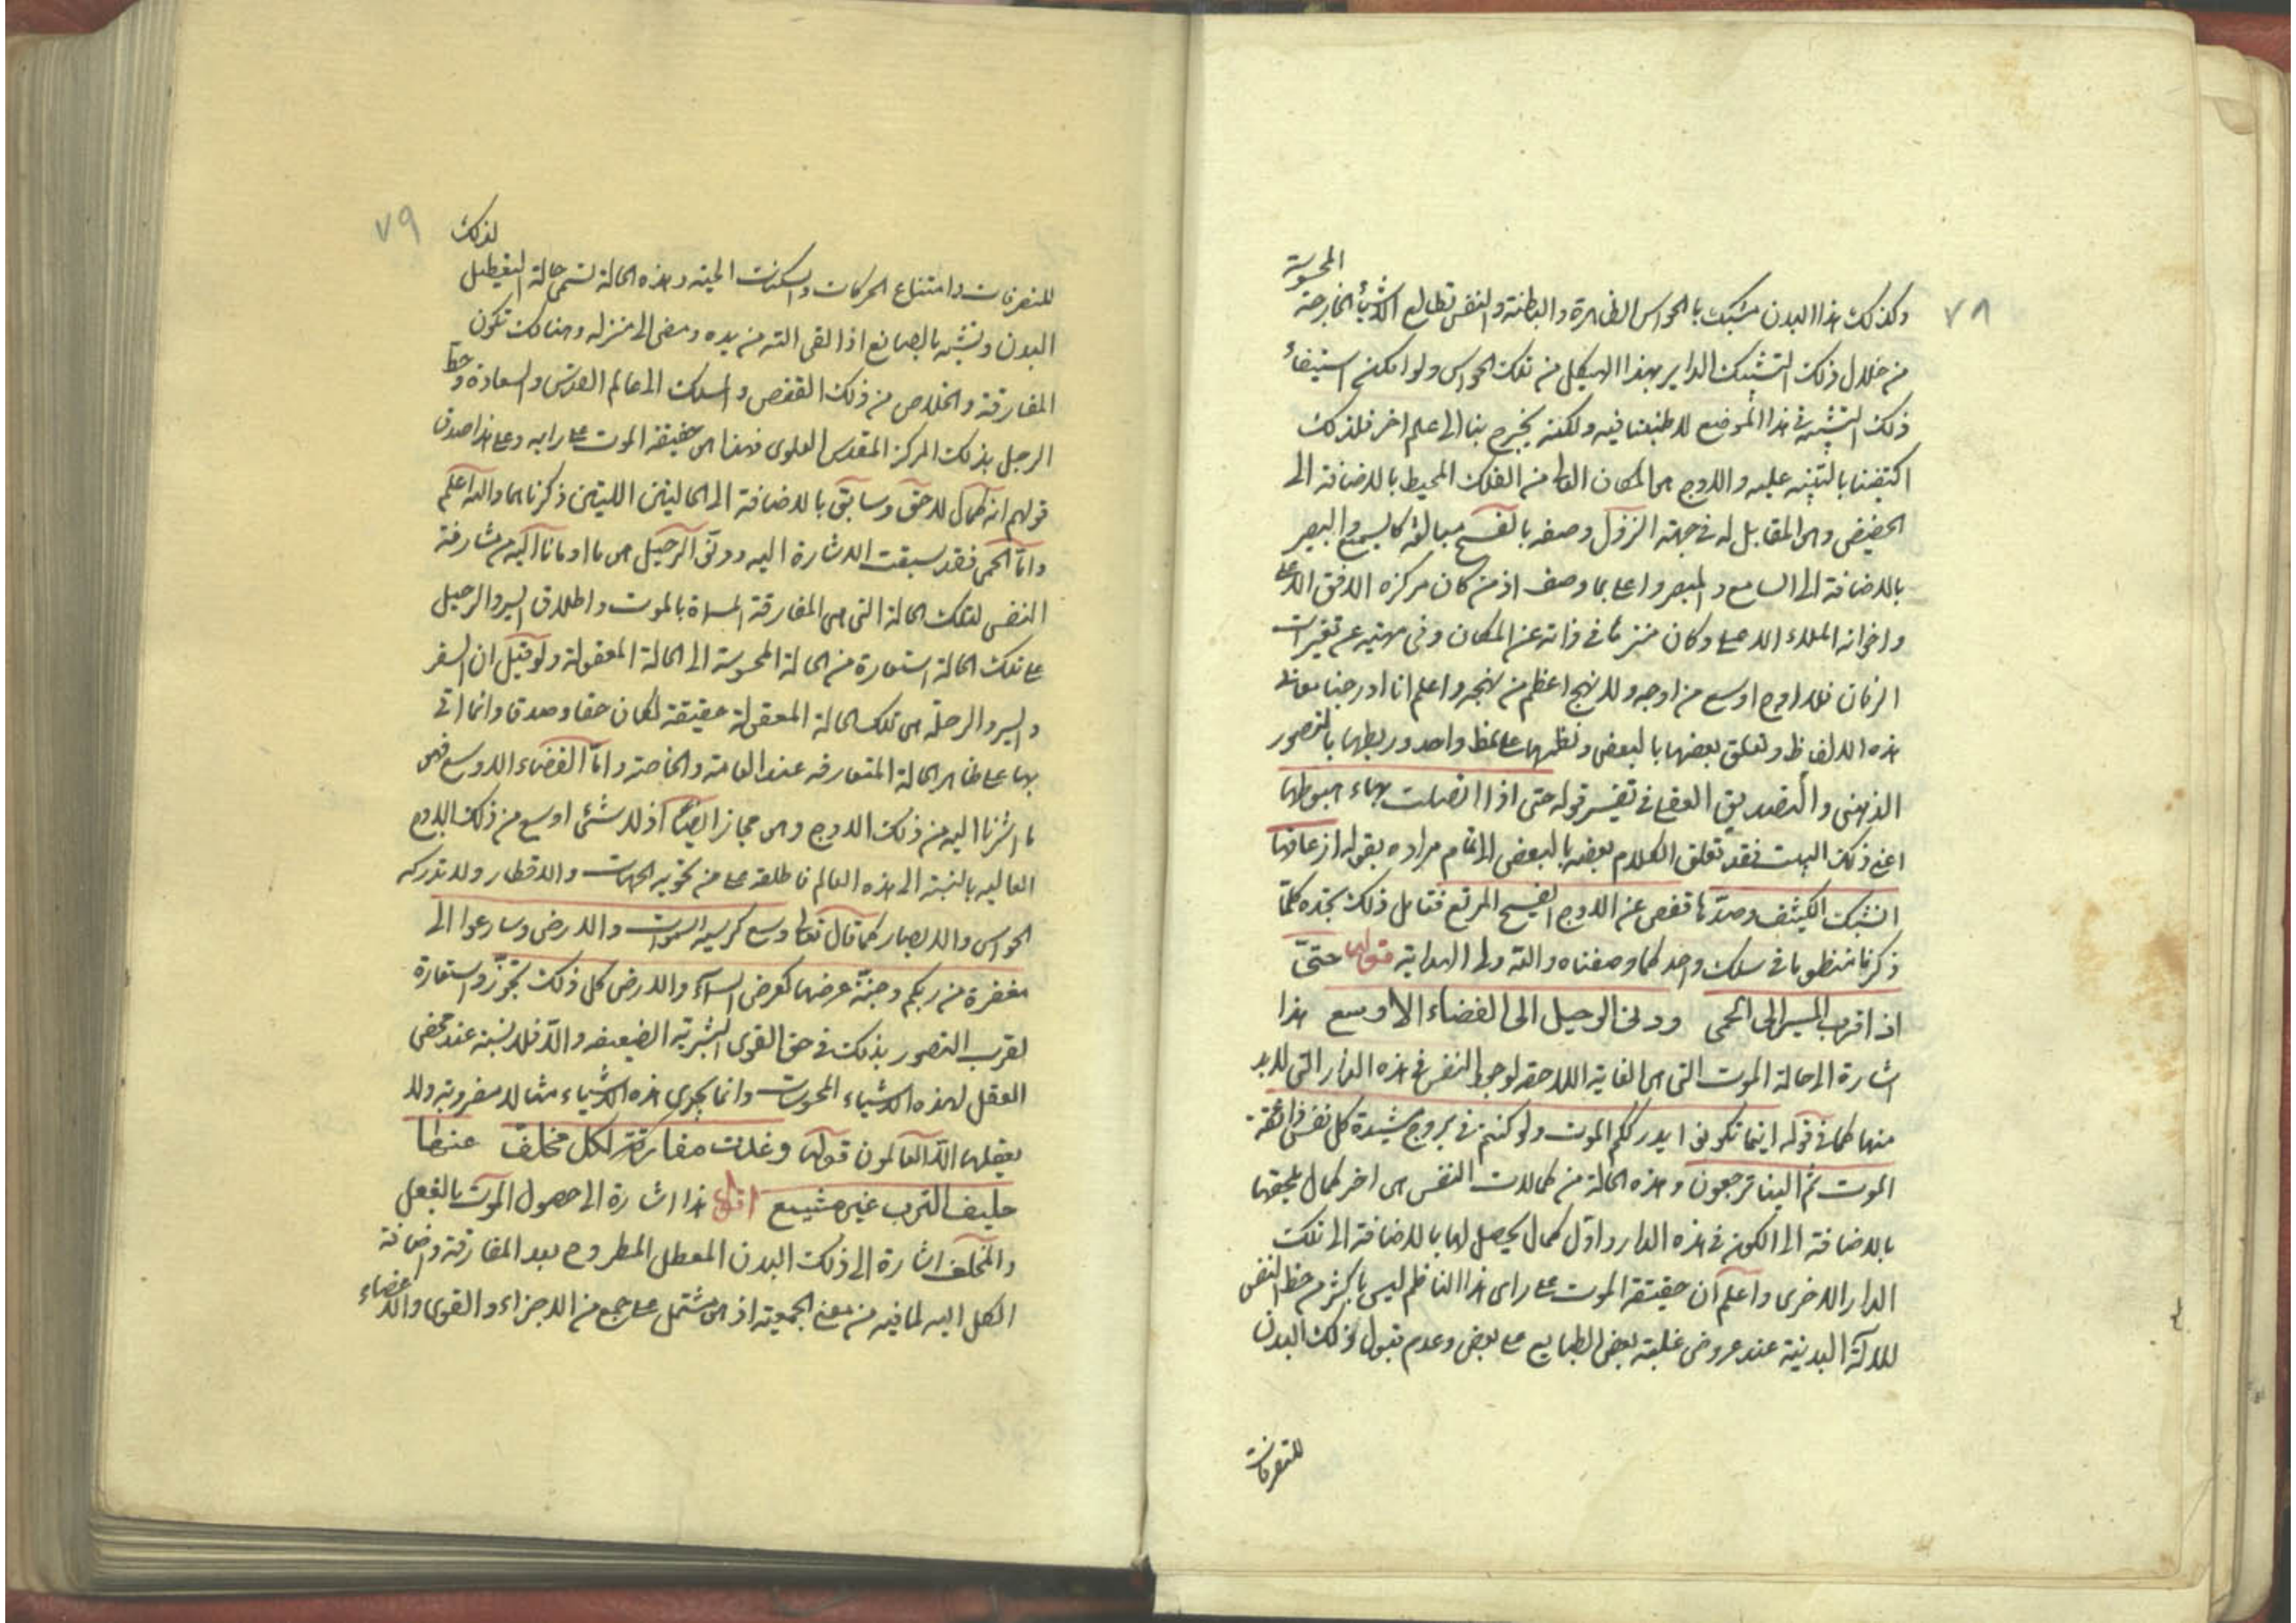 ٧٨
المحسوسة
وكذلك هذا البدن مشبك بالحواس الظاهرة والباطنة والنفس تطالع الاشياء الخارجة
من خلال ذلك التشبك الداير بهذا الهيكل من تلك الحواس ولو امكنني استيفاء
ذلك التشبيه في هذا الموضع لاطنبنا فيه ولكنه يخرج بنا الى علم اخر فلذلك
اكتفينا بالتنبيه عليه والاوج هي المكان العالي من الفلك المحيط بالاضافة الى
الحضيض وهي المقابل له في جهة النزول وصفه بالفسيح مبالغة كالسميع والبصير
بالاضافة الى السامع والمبصر واعلى بما وصف اذ من كان مركزه الافق الاعلى
واخوانه الملاء الاعلى وكان منزها في ذاته عن المكان وفي مهيته عن تغيرات
الزمان فلا اوج اوسع من اوجه ولا نهج اعظم من نهجه واعلم انا ادرجنا معاني
هذه الالفاظ وتعلق بعضها بالبعض ونظمها على نمط واحد وربطها بالتصور
الذهني والتصديق العقلي في تفسير قوله حتى اذا اتصلت بهاء هبوطها
اعني ذلك البيت فقد تعلق الكلام بعضه بالبعض الى تمام مراده بقوله اذ عاقها
الشبك الكثيف وصدها قفص عن الاوج الفسيح المربع فتامل ذلك تجده كلما
ذكرنا منظوما في سلك واحد كما وصفناه والله ولي الهداية قوله حتى
اذا قرب المسير الى الحمى ودنى الرحيل الى الفضاء الاوسع هذا
اشارة الى حالة الموت التي هي الغاية اللاحقة لوجود النفس في هذه الدار التي لا بد
منها كما في قوله اينما تكونوا يدرككم الموت ولو كنتم في بروج مشيدة كل نفس ذائقة
الموت ثم الينا ترجعون وهذه الحالة من كمالات النفس هي اخر كمال يلحقها
بالاضافة الى الكون في هذه الدار واول كمال يحصل لها بالاضافة الى تلك
الدار الاخرى واعلم ان حقيقة الموت على راي هذا الناظم ليس باكثر من حظ النفس
للالة البدنية عند عروض غلبة بعض الطبايع على بعض وعدم قبول ذلك البدن
للتصرفات
٧٩
لذلك
للتصرفات وامتناع الحركات والسكنات الحية وهذه الحالة تسمى حالة التعطيل
البدن وتشبه بالصانع اذا القى الته من يده ومضى الى منزله وهنالك تكون
المفارقة والخلاص من ذلك القفص والسلك الى عالم القدس والسعادة وحط
الرحل بذلك المركز المقدس العلوي فهذا هي حقيقة الموت على رايه وعلى هذا صدق
قولهم انه كمال لاحق وسابق بالاضافة الى الحالتين اللتين ذكرناهما والله اعلم
واما الحمى فقد سبقت الاشارة اليه ودنو الرحيل هي ما اومانا اليه من مشارفة
النفس لتلك الحالة التي هي المفارقة المسماة بالموت واطلاق السير والرحيل
على تلك الحالة استعارة من الحالة المحسوسة الى الحالة المعقولة ولو قيل ان السفر
والسير والرحلة هي تلك الحالة المعقولة حقيقة لكان حقا وصدقا وانما اتى
بها على ظاهر الحالة المتعارفه عند العامة والخاصة واما الفضاء الاوسع فهي
ما اشرنا اليه من ذلك الاوج وهي مجاز ايضا اذ لا شئ اوسع من ذلك الاوج
العاليه بالنسبة الى هذه العالم فاطلقه على من تحويه الجهات والاقطار ولا تدركه
الحواس والابصار كما قال تعالى وسع كرسيه السموات والارض وسارعوا الى
مغفرة من ربكم وجنة عرضها كعرض السماء والارض كل ذلك تجوز واستعارة
لقرب التصور بذلك في حق القوى البشرية الضعيفه والا فلا نسبة عند محض
العقل لهذه الاشياء المحسوسات وانما يجري هذه الاشياء مثالا مضروبة ولا
يعقلها الا العالمون قوله وغدت مفارقة لكل مخلف عنها
حليف الترب غير مشيع اقول هذا اشارة الى حصول الموت بالفعل
والمخلف اشارة الى ذلك البدن المعطل المطروح بعد المفارقة واضافة
الكل اليه لما فيه من معنى الجمعية اذ هي مشتمل على جمع من الاجزاء والقوى والاعضاء